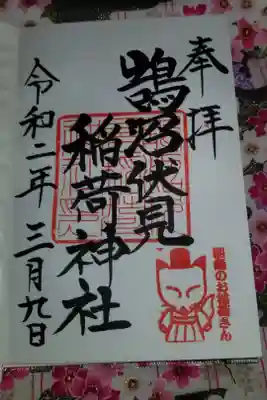 奉拝
鵠沼伏見
稲荷神社
令和二年三月九日
のお稲荷さん